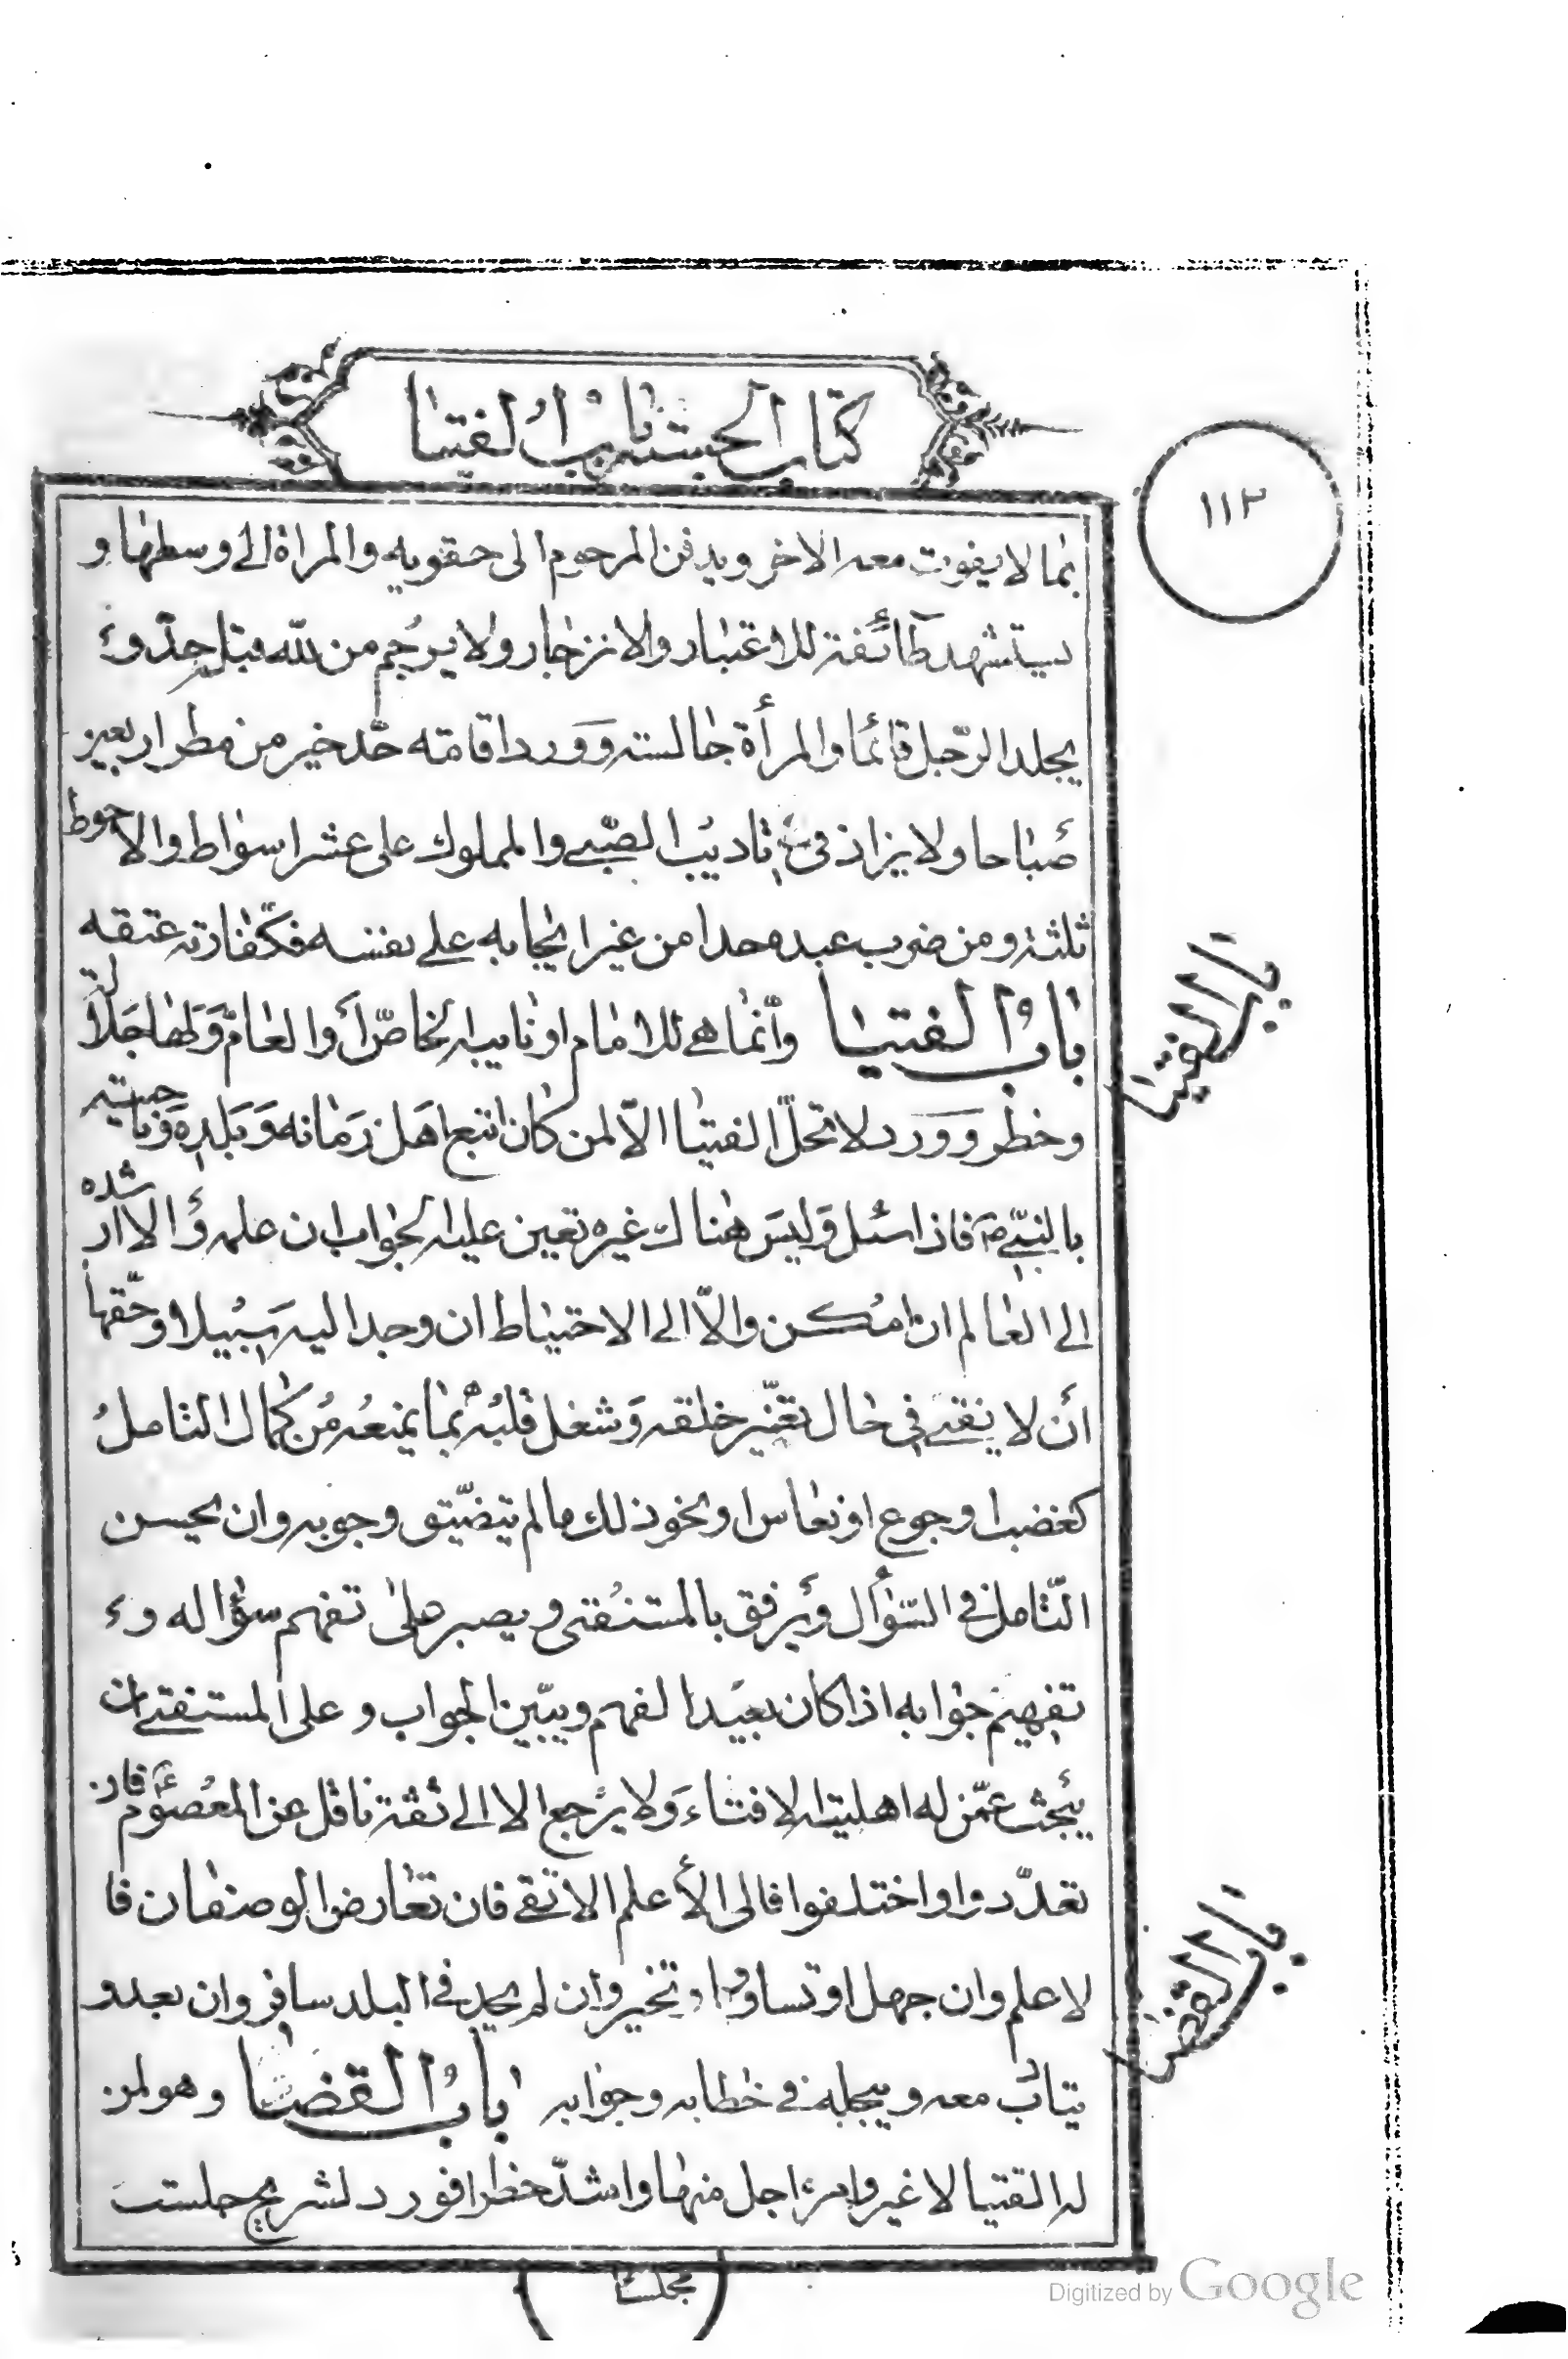 كتاب الحسبة باب الفتيا
١١٢
بما لا يفوت معه الاخر ويدفن المرجوم الى حقويه والمراة الى وسطها و
يستشهد طائفة للاعتبار والانزجار ولا يرجم من لله قبله حد و
يجلد الرّجل قائما والمرأة جالسة وورد اقامة حدّ خير من مطر اربعين
صباحا ولا يزاد فى تاديب الصّبى والمملوك على عشر اسواط والاحوط
ثلثة ومن ضرب عبده حدا من غير ايجابه على نفسه فكفّارته عتقه
باب الفتيا وانّما هى للامام او نايبه الخاصّ او العامّ ولها جلالة
وخطر وورد لا تحلّ الفتيا الّا لمن كان اتبع اهل زمانه وبلده وناحيته
بالنبىّ ص فاذا سئل وليس هناك غيره تعين عليه الجواب ان علمه والا ارشده
الى العالم ان امكن والّا الى الاحتياط ان وجد اليه سبيلا وحقّها
ان لا يفتى فى حال تغيّر خلقه وشغل قلبه بما يمنعه من كمال التامل
كغضب او جوع او نعاس او نحو ذلك ما لم يتضيّق وجوبه وان يحسن
التّامل فى السّؤال ويرفق بالمستفتى ويصبر على تفهم سؤاله و
تفهيم جوابه اذا كان بعيد الفهم ويبيّن الجواب و على المستفتى ان
يبحث عمّن له اهلية الافتاء ولا يرجع الا الى ثقة ناقل عن المعصوم ع فان
تعدّدوا واختلفوا فالى الأعلم الاتقى فان تعارض الوصفان فا
لاعلم وان جهل او تساووا تخير وان لم يجد فى البلد سافر وان بعد و
يتادب معه ويبجله فى خطابه وجوابه باب القضا وهو لمن
له الفتيا لا غير وامره اجل منها واشدّ خطرا فورد لشريح جلست
مجلسا
باب الفتيا
باب القضا
Digitized by Google